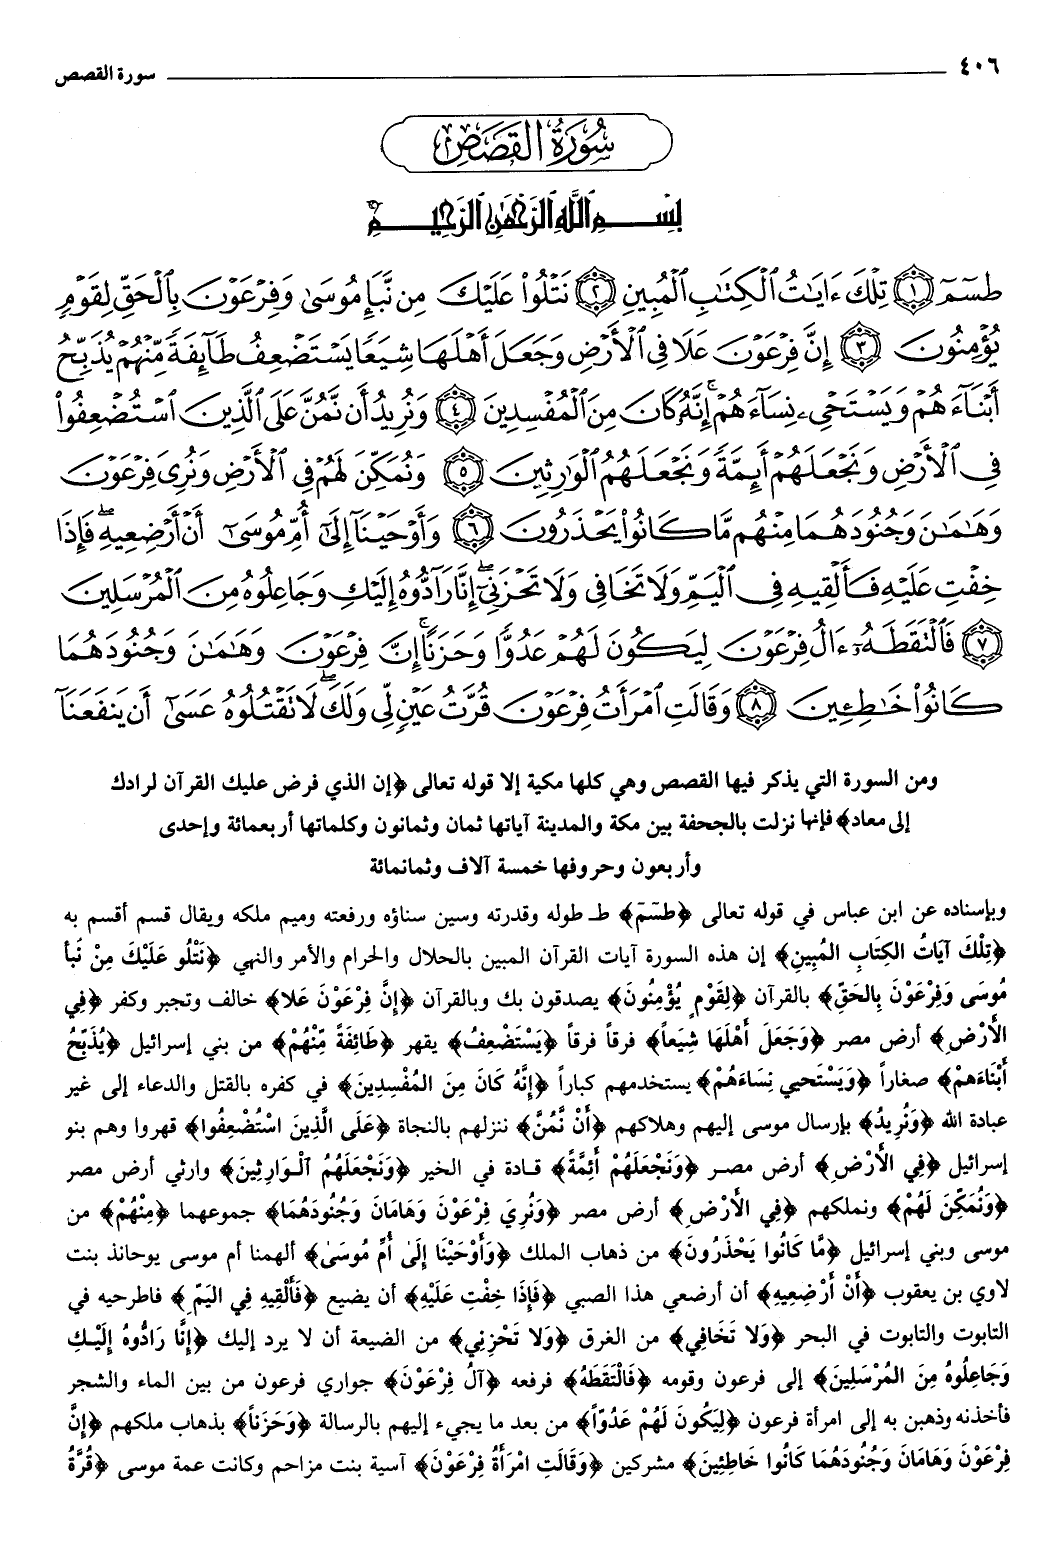 ٤٠٦ سورة القصص
سُورَةُ القَصَصِ
بِسْمِ اللَّهِ الرَّحْمَٰنِ الرَّحِيمِ
طسٓمٓ ﴿١﴾ تِلْكَ ءَايَٰتُ ٱلْكِتَٰبِ ٱلْمُبِينِ ﴿٢﴾ نَتْلُوا۟ عَلَيْكَ مِن نَّبَإِ مُوسَىٰ وَفِرْعَوْنَ بِٱلْحَقِّ لِقَوْمٍ
يُؤْمِنُونَ ﴿٣﴾ إِنَّ فِرْعَوْنَ عَلَا فِى ٱلْأَرْضِ وَجَعَلَ أَهْلَهَا شِيَعًا يَسْتَضْعِفُ طَآئِفَةً مِّنْهُمْ يُذَبِّحُ
أَبْنَآءَهُمْ وَيَسْتَحْىِۦ نِسَآءَهُمْ ۚ إِنَّهُۥ كَانَ مِنَ ٱلْمُفْسِدِينَ ﴿٤﴾ وَنُرِيدُ أَن نَّمُنَّ عَلَى ٱلَّذِينَ ٱسْتُضْعِفُوا۟
فِى ٱلْأَرْضِ وَنَجْعَلَهُمْ أَئِمَّةً وَنَجْعَلَهُمُ ٱلْوَٰرِثِينَ ﴿٥﴾ وَنُمَكِّنَ لَهُمْ فِى ٱلْأَرْضِ وَنُرِىَ فِرْعَوْنَ
وَهَٰمَٰنَ وَجُنُودَهُمَا مِنْهُم مَّا كَانُوا۟ يَحْذَرُونَ ﴿٦﴾ وَأَوْحَيْنَآ إِلَىٰٓ أُمِّ مُوسَىٰٓ أَنْ أَرْضِعِيهِ ۖ فَإِذَا
خِفْتِ عَلَيْهِ فَأَلْقِيهِ فِى ٱلْيَمِّ وَلَا تَخَافِى وَلَا تَحْزَنِىٓ ۖ إِنَّا رَآدُّوهُ إِلَيْكِ وَجَاعِلُوهُ مِنَ ٱلْمُرْسَلِينَ
﴿٧﴾ فَٱلْتَقَطَهُۥٓ ءَالُ فِرْعَوْنَ لِيَكُونَ لَهُمْ عَدُوًّا وَحَزَنًا ۗ إِنَّ فِرْعَوْنَ وَهَٰمَٰنَ وَجُنُودَهُمَا
كَانُوا۟ خَٰطِـِٔينَ ﴿٨﴾ وَقَالَتِ ٱمْرَأَتُ فِرْعَوْنَ قُرَّتُ عَيْنٍ لِّى وَلَكَ ۖ لَا تَقْتُلُوهُ عَسَىٰٓ أَن يَنفَعَنَآ
ومن السورة التي يذكر فيها القصص وهي كلها مكية إلا قوله تعالى ﴿إن الذي فرض عليك القرآن لرادك
إلى معاد﴾ فإنها نزلت بالجحفة بين مكة والمدينة آياتها ثمان وثمانون وكلماتها أربعمائة وإحدى
وأربعون وحروفها خمسة آلاف وثمانمائة
وبإسناده عن ابن عباس في قوله تعالى ﴿طسٓمٓ﴾ طـ طوله وقدرته وسين سناؤه ورفعته وميم ملكه ويقال قسم أقسم به
﴿تِلْكَ آيَاتُ الكِتَابِ المُبِينِ﴾ إن هذه السورة آيات القرآن المبين بالحلال والحرام والأمر والنهي ﴿نَتْلُو عَلَيْكَ مِنْ نَبأ
مُوسَى وَفِرْعَوْنَ بِالحَقِّ﴾ بالقرآن ﴿لِقَوْمٍ يُؤْمِنُونَ﴾ يصدقون بك وبالقرآن ﴿إِنَّ فِرْعَوْنَ عَلا﴾ خالف وتجبر وكفر ﴿فِي
الأَرْضِ﴾ أرض مصر ﴿وَجَعَلَ أَهْلَهَا شِيَعاً﴾ فرقاً فرقاً ﴿يَسْتَضْعِفُ﴾ يقهر ﴿طَائِفَةً مِّنْهُمْ﴾ من بني إسرائيل ﴿يُذَبِّحُ
أَبْنَاءَهمْ﴾ صغاراً ﴿وَيَسْتَحيي نِسَاءَهُمْ﴾ يستخدمهم كباراً ﴿إنَّهُ كَانَ مِنَ المُفْسِدِينَ﴾ في كفره بالقتل والدعاء إلى غير
عبادة الله ﴿وَنُرِيدُ﴾ بإرسال موسى إليهم وهلاكهم ﴿أَنْ نَّمُنَّ﴾ ننزلهم بالنجاة ﴿عَلَى الَّذِينَ اسْتُضْعِفُوا﴾ قهروا وهم بنو
إسرائيل ﴿فِي الأَرْضِ﴾ أرض مصر ﴿وَنَجْعَلَهُمْ أَئِمَّةً﴾ قادة في الخير ﴿وَنَجْعَلَهُمُ الْوَارِثِينَ﴾ وارثي أرض مصر
﴿وَنُمَكِّنَ لَهُمْ﴾ ونملكهم ﴿فِي الأَرْضِ﴾ أرض مصر ﴿وَنُرِيَ فِرْعَوْنَ وَهَامَانَ وَجُنُودَهُمَا﴾ جموعهما ﴿مِنْهُمْ﴾ من
موسى وبني إسرائيل ﴿مَّا كَانُوا يَحْذَرُونَ﴾ من ذهاب الملك ﴿وَأَوْحَيْنَا إِلَى أُمِّ مُوسَى﴾ ألهمنا أم موسى يوحانذ بنت
لاوي بن يعقوب ﴿أَنْ أَرْضِعِيهِ﴾ أن أرضعي هذا الصبي ﴿فَإِذَا خِفْتِ عَلَيْهِ﴾ أن يضيع ﴿فَأَلْقِيهِ فِي اليَمِّ﴾ فاطرحيه في
التابوت والتابوت في البحر ﴿وَلا تَخَافِي﴾ من الغرق ﴿وَلا تَحْزَنِي﴾ من الضيعة أن لا يرد إليك ﴿إِنَّا رَادُّوهُ إِلَيْكِ
وَجَاعِلُوهُ مِنَ المُرْسَلِينَ﴾ إلى فرعون وقومه ﴿فَالْتَقَطَهُ﴾ فرفعه ﴿آلُ فِرْعَوْنَ﴾ جواري فرعون من بين الماء والشجر
فأخذنه وذهبن به إلى امرأة فرعون ﴿لِيَكُونَ لَهُمْ عَدُوّاً﴾ من بعد ما يجيء إليهم بالرسالة ﴿وَحَزَناً﴾ بذهاب ملكهم ﴿إِنَّ
فِرْعَوْنَ وَهَامَانَ وَجُنُودَهُمَا كَانُوا خَاطِئِينَ﴾ مشركين ﴿وَقَالَتِ امْرَأَةُ فِرْعَوْنَ﴾ آسية بنت مزاحم وكانت عمة موسى ﴿قُرَّةُ